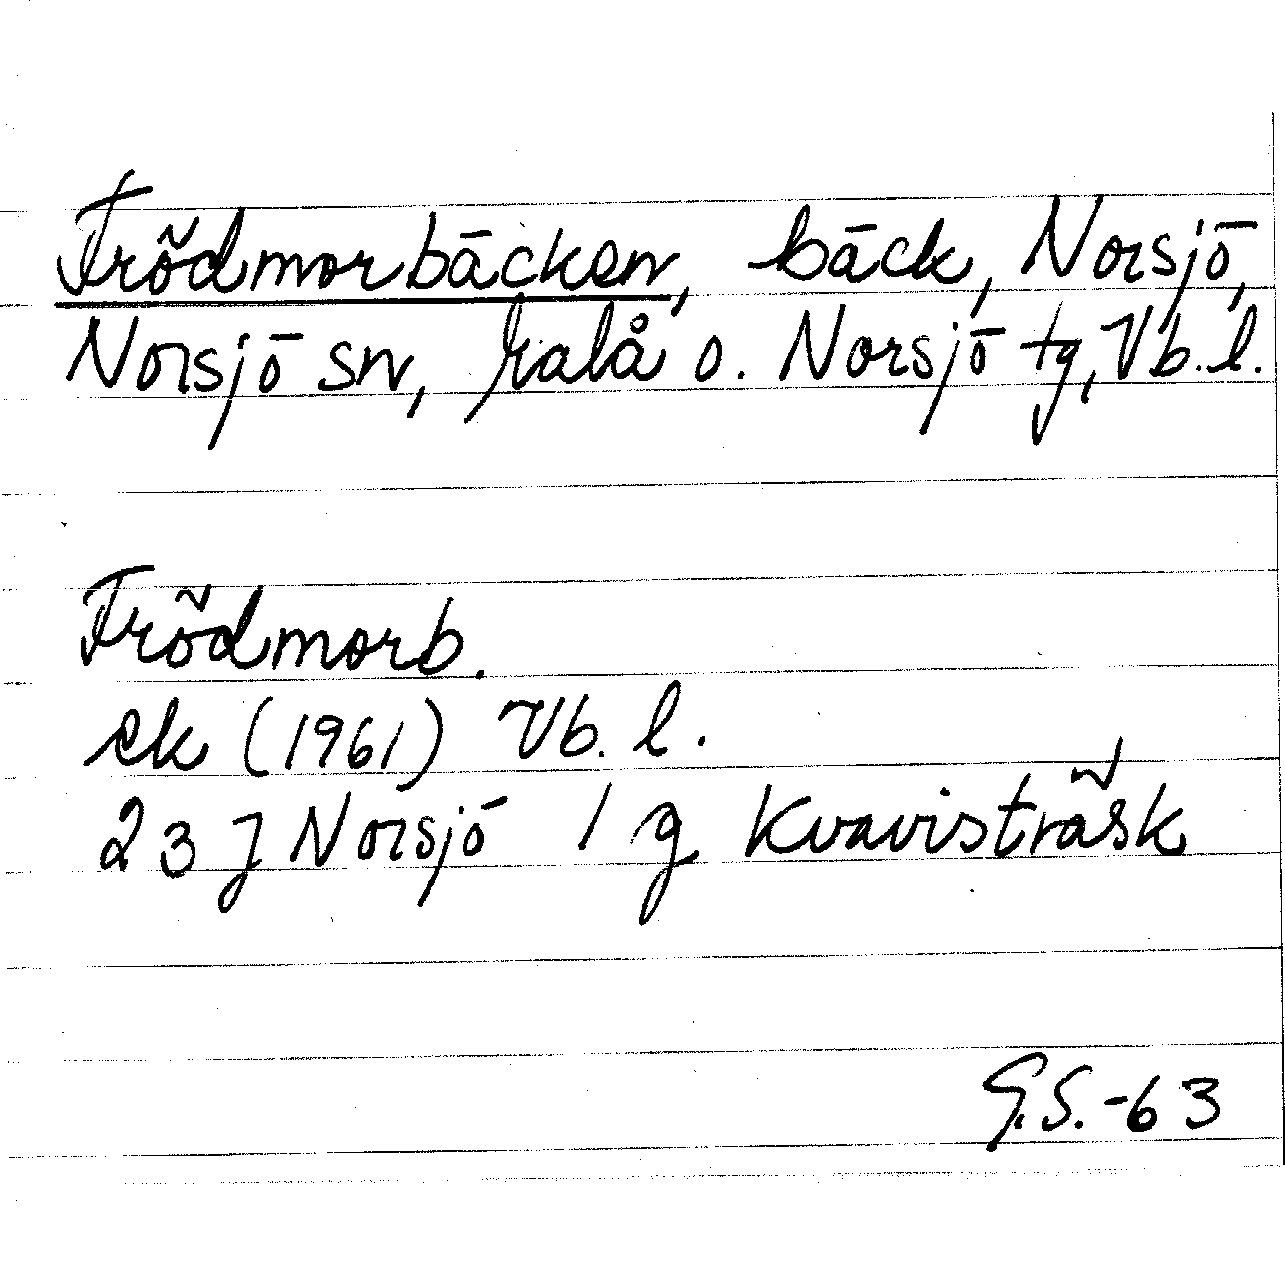 Frödmorbäcken, bäck, Norsjö,
Norsjö sn, Malå o. Norsjö tg, Vb. l.
Frödmorb.
ek (1961) Vb. l.
23 J Norsjö 1 g Kvavisträsk
G.S.-63